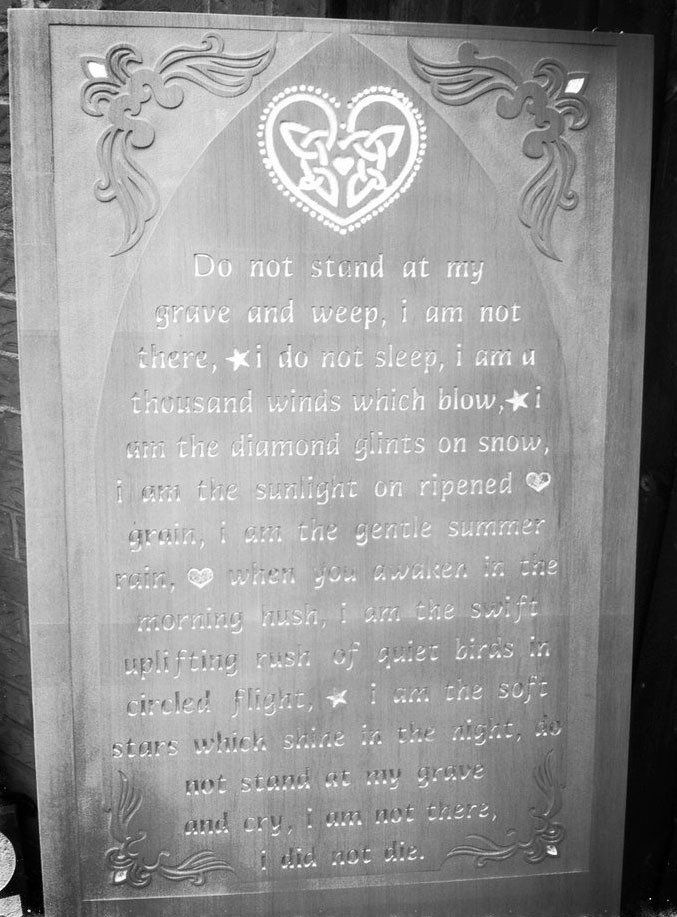 Do not stand at my
grave and weep, i am not
there, i do not sleep, i am a
thousand winds which blow, i
am the diamond glints on snow,
i am the sunlight on ripened
grain, i am the gentle summer
rain, when you awaken in the
morning hush, i am the swift
uplifting rush of quiet birds in
circled flight, i am the soft
stars which shine in the night, do
not stand at my grave
and cry, i am not there,
i did not die.